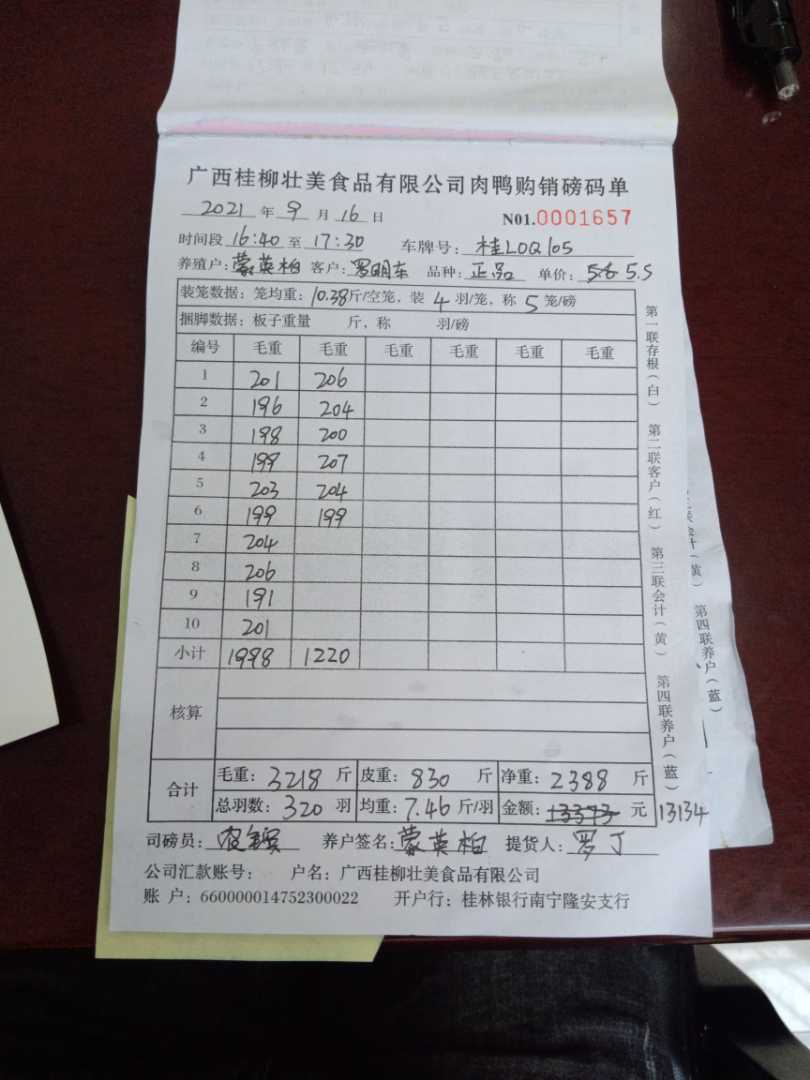 广西桂柳壮美食品有限公司肉鸭购销磅码单
2021 年 9 月 16 日 N01.0001657
时间段 16:40 至 17:30 车牌号: 桂L0Q105
养殖户: 蒙英柏 客户: 罗明东 品种: 正品 单价: 5.6 5.5
装笼数据: 笼均重: 10.38斤/空笼, 装 4 羽/笼, 称 5 笼/磅
捆脚数据: 板子重量 斤, 称 羽/磅
编号 毛重 毛重 毛重 毛重 毛重 毛重
1 201 206
2 196 204
3 198 200
4 199 207
5 203 204
6 199 199
7 204
8 206
9 191
10 201
小计 1998 1220
核算
合计 毛重: 3218 斤 皮重: 830 斤 净重: 2388 斤
总羽数: 320 羽 均重: 7.46 斤/羽 金额: 13373 元 13134
司磅员: 养户签名: 蒙英柏 提货人: 罗丁
公司汇款账号: 户名: 广西桂柳壮美食品有限公司
账 户: 660000014752300022 开户行: 桂林银行南宁隆安支行
第一联存根(白) 第二联客户(红) 第三联会计(黄) 第四联养户(蓝)
会计(黄) 第四联养户(蓝)